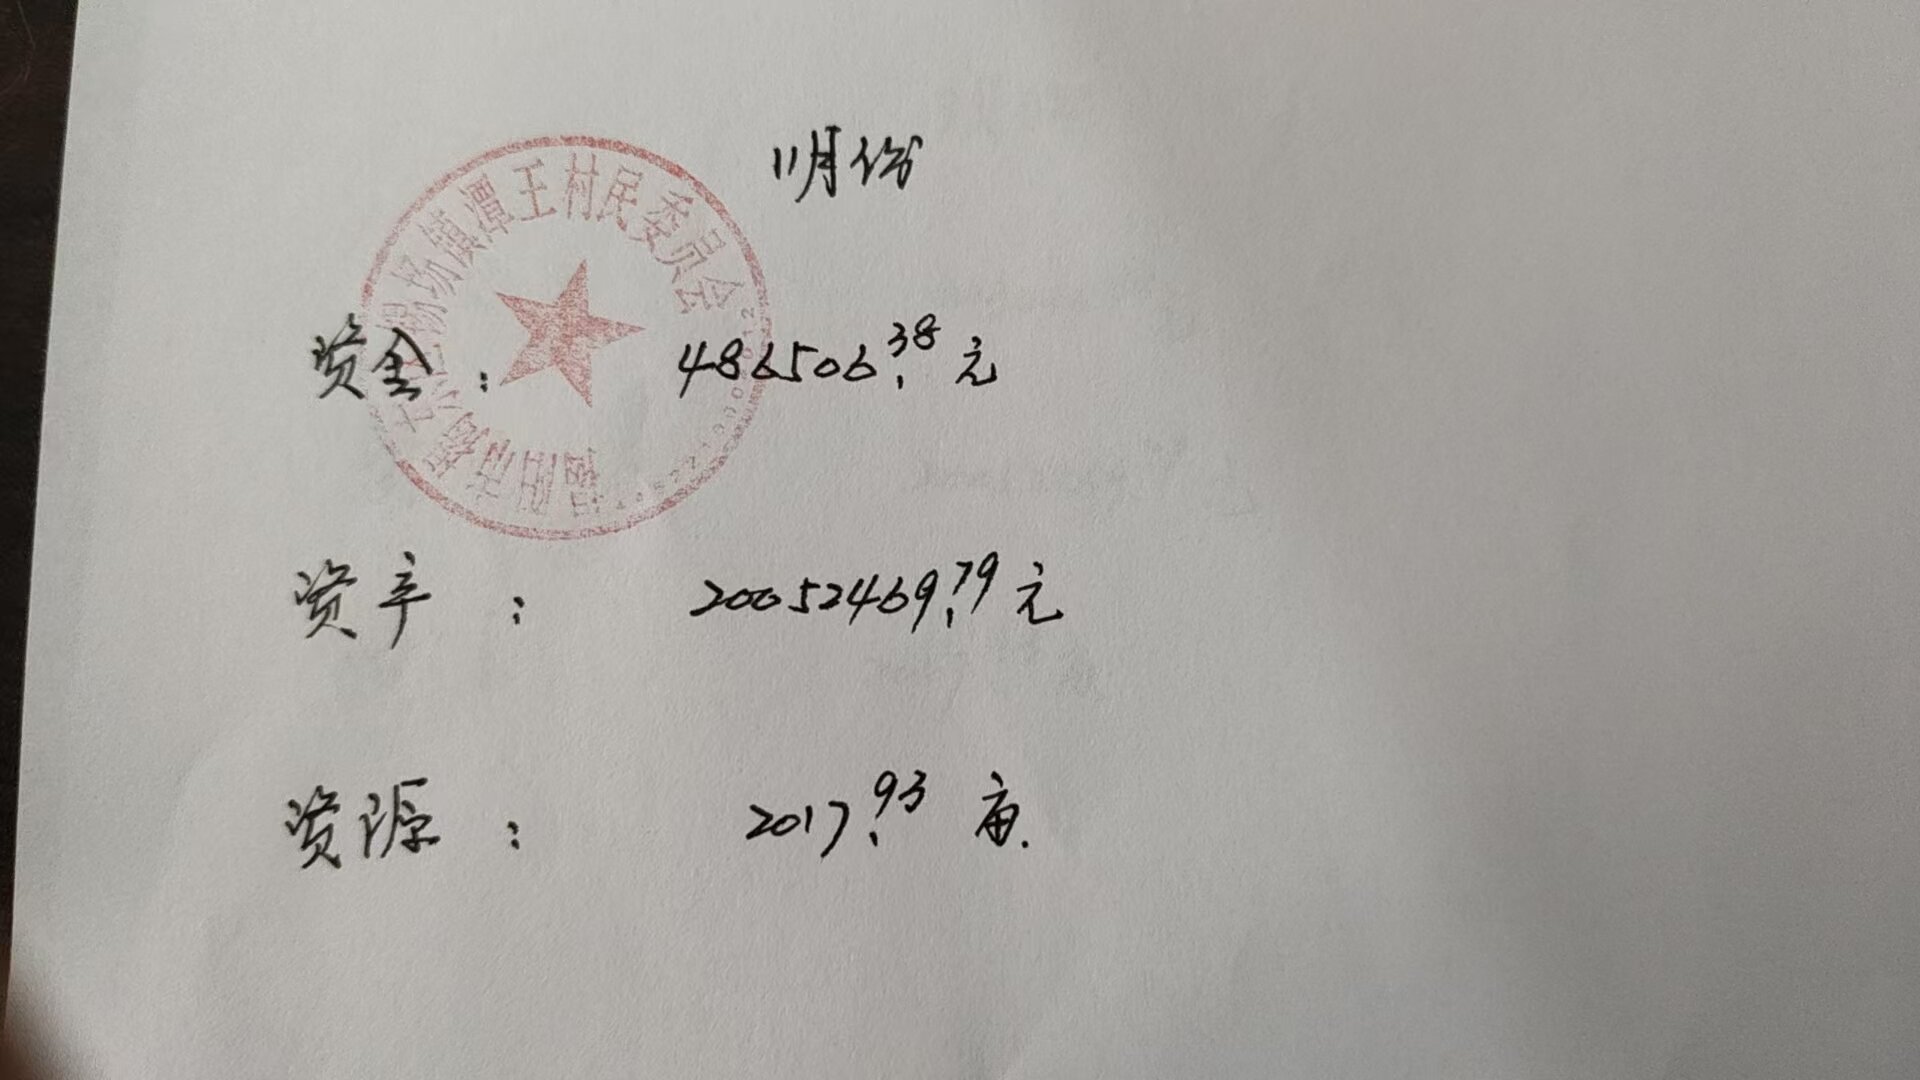 11月份
杨场镇潭王村民委员会
资金： 486506.38元
资产： 20052469.79元
资源： 2017.93 亩.